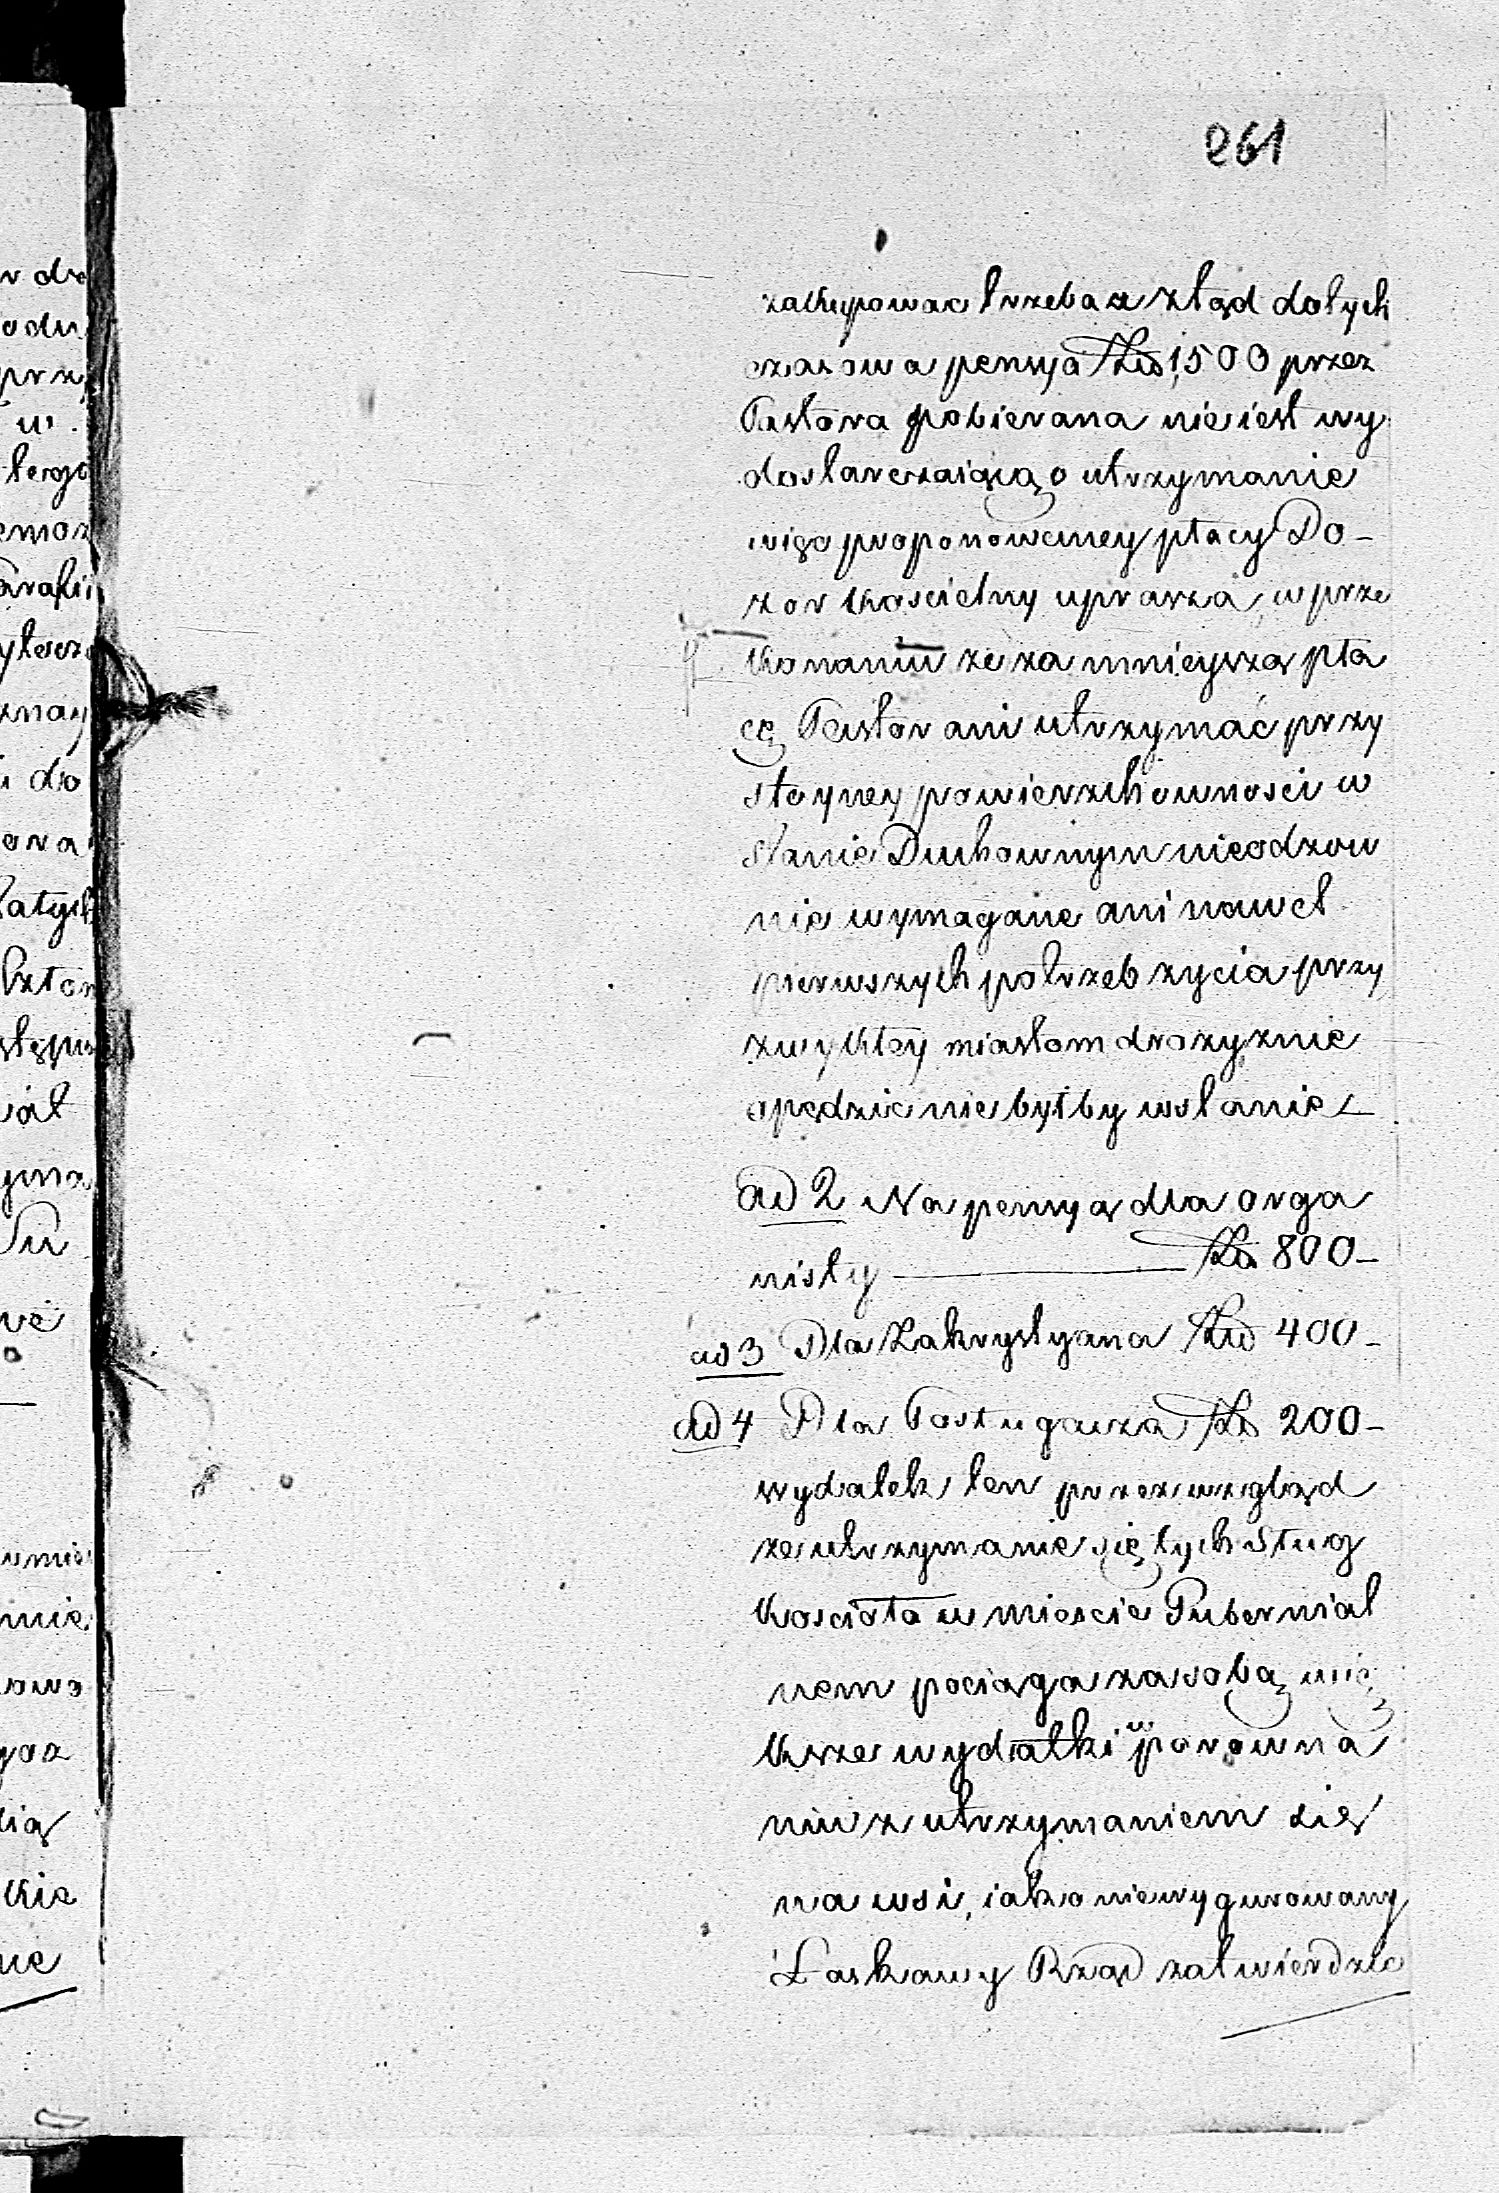 261
zakupować trzeba a ztąd dotych
czasowa pensya Złp 1,500 przez
Pastora pobierana nie iest wy
dostarczaiącą o utrzymanie
więc proponowaney płacy Do-
zor Koscielny uprasza, w prze
konaniu ze za mnieyszą pła
cę Pastor ani utrzymać przy
stoyney powierzchownosci w
stanie Duchownym nieodzow
nie wymagane ani nawet
pierwszych potrzeb zycia przy
zwykłey miastom drozyznie
opędzic nie byłby wstanie
ad 2 Na pensyą dla orga
nisty Złp 800-
ad 3 Dla Zakrystyana Złp 400-
ad 4 Dla Posługacza Złp 200-
wydatek ten przez wzgląd
ze utrzymanie się tych Sług
Koscioła w miescie Gubernial
nem pociąga za sobą wię
ksze wydatki w porowna
niu z utrzymaniem się
na wsi, iako niewygurowany
Łaskawy Rząd zatwierdzic